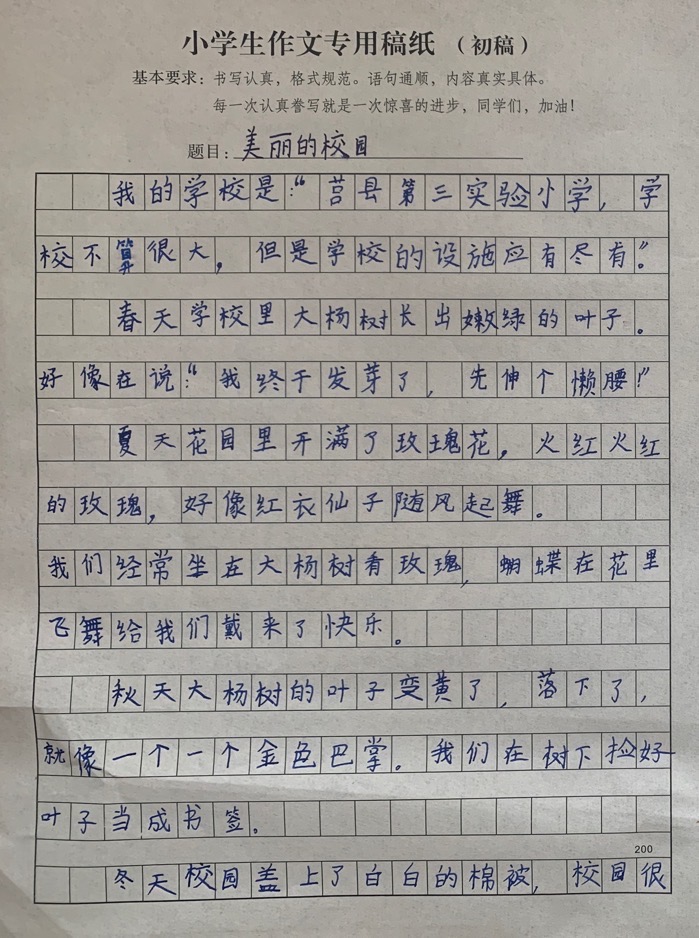 小学生作文专用稿纸（初稿）
基本要求：书写认真，格式规范。语句通顺，内容真实具体。
每一次认真誊写就是一次惊喜的进步，同学们，加油！
题目：美丽的校园
我的学校是：“莒县第三实验小学，学
校不算很大，但是学校的设施应有尽有”。
春天学校里大杨树长出嫩绿的叶子。
好像在说：“我终于发芽了，先伸个懒腰！”
夏天花园里开满了玫瑰花，火红火红
的玫瑰，好像红衣仙子随风起舞。
我们经常坐在大杨树看玫瑰，蝴蝶在花里
飞舞给我们戴来了快乐。
秋天大杨树的叶子变黄了，落下了，
就像一个一个金色巴掌。我们在树下捡好
叶子当成书签。
200
冬天校园盖上了白白的棉被，校园很